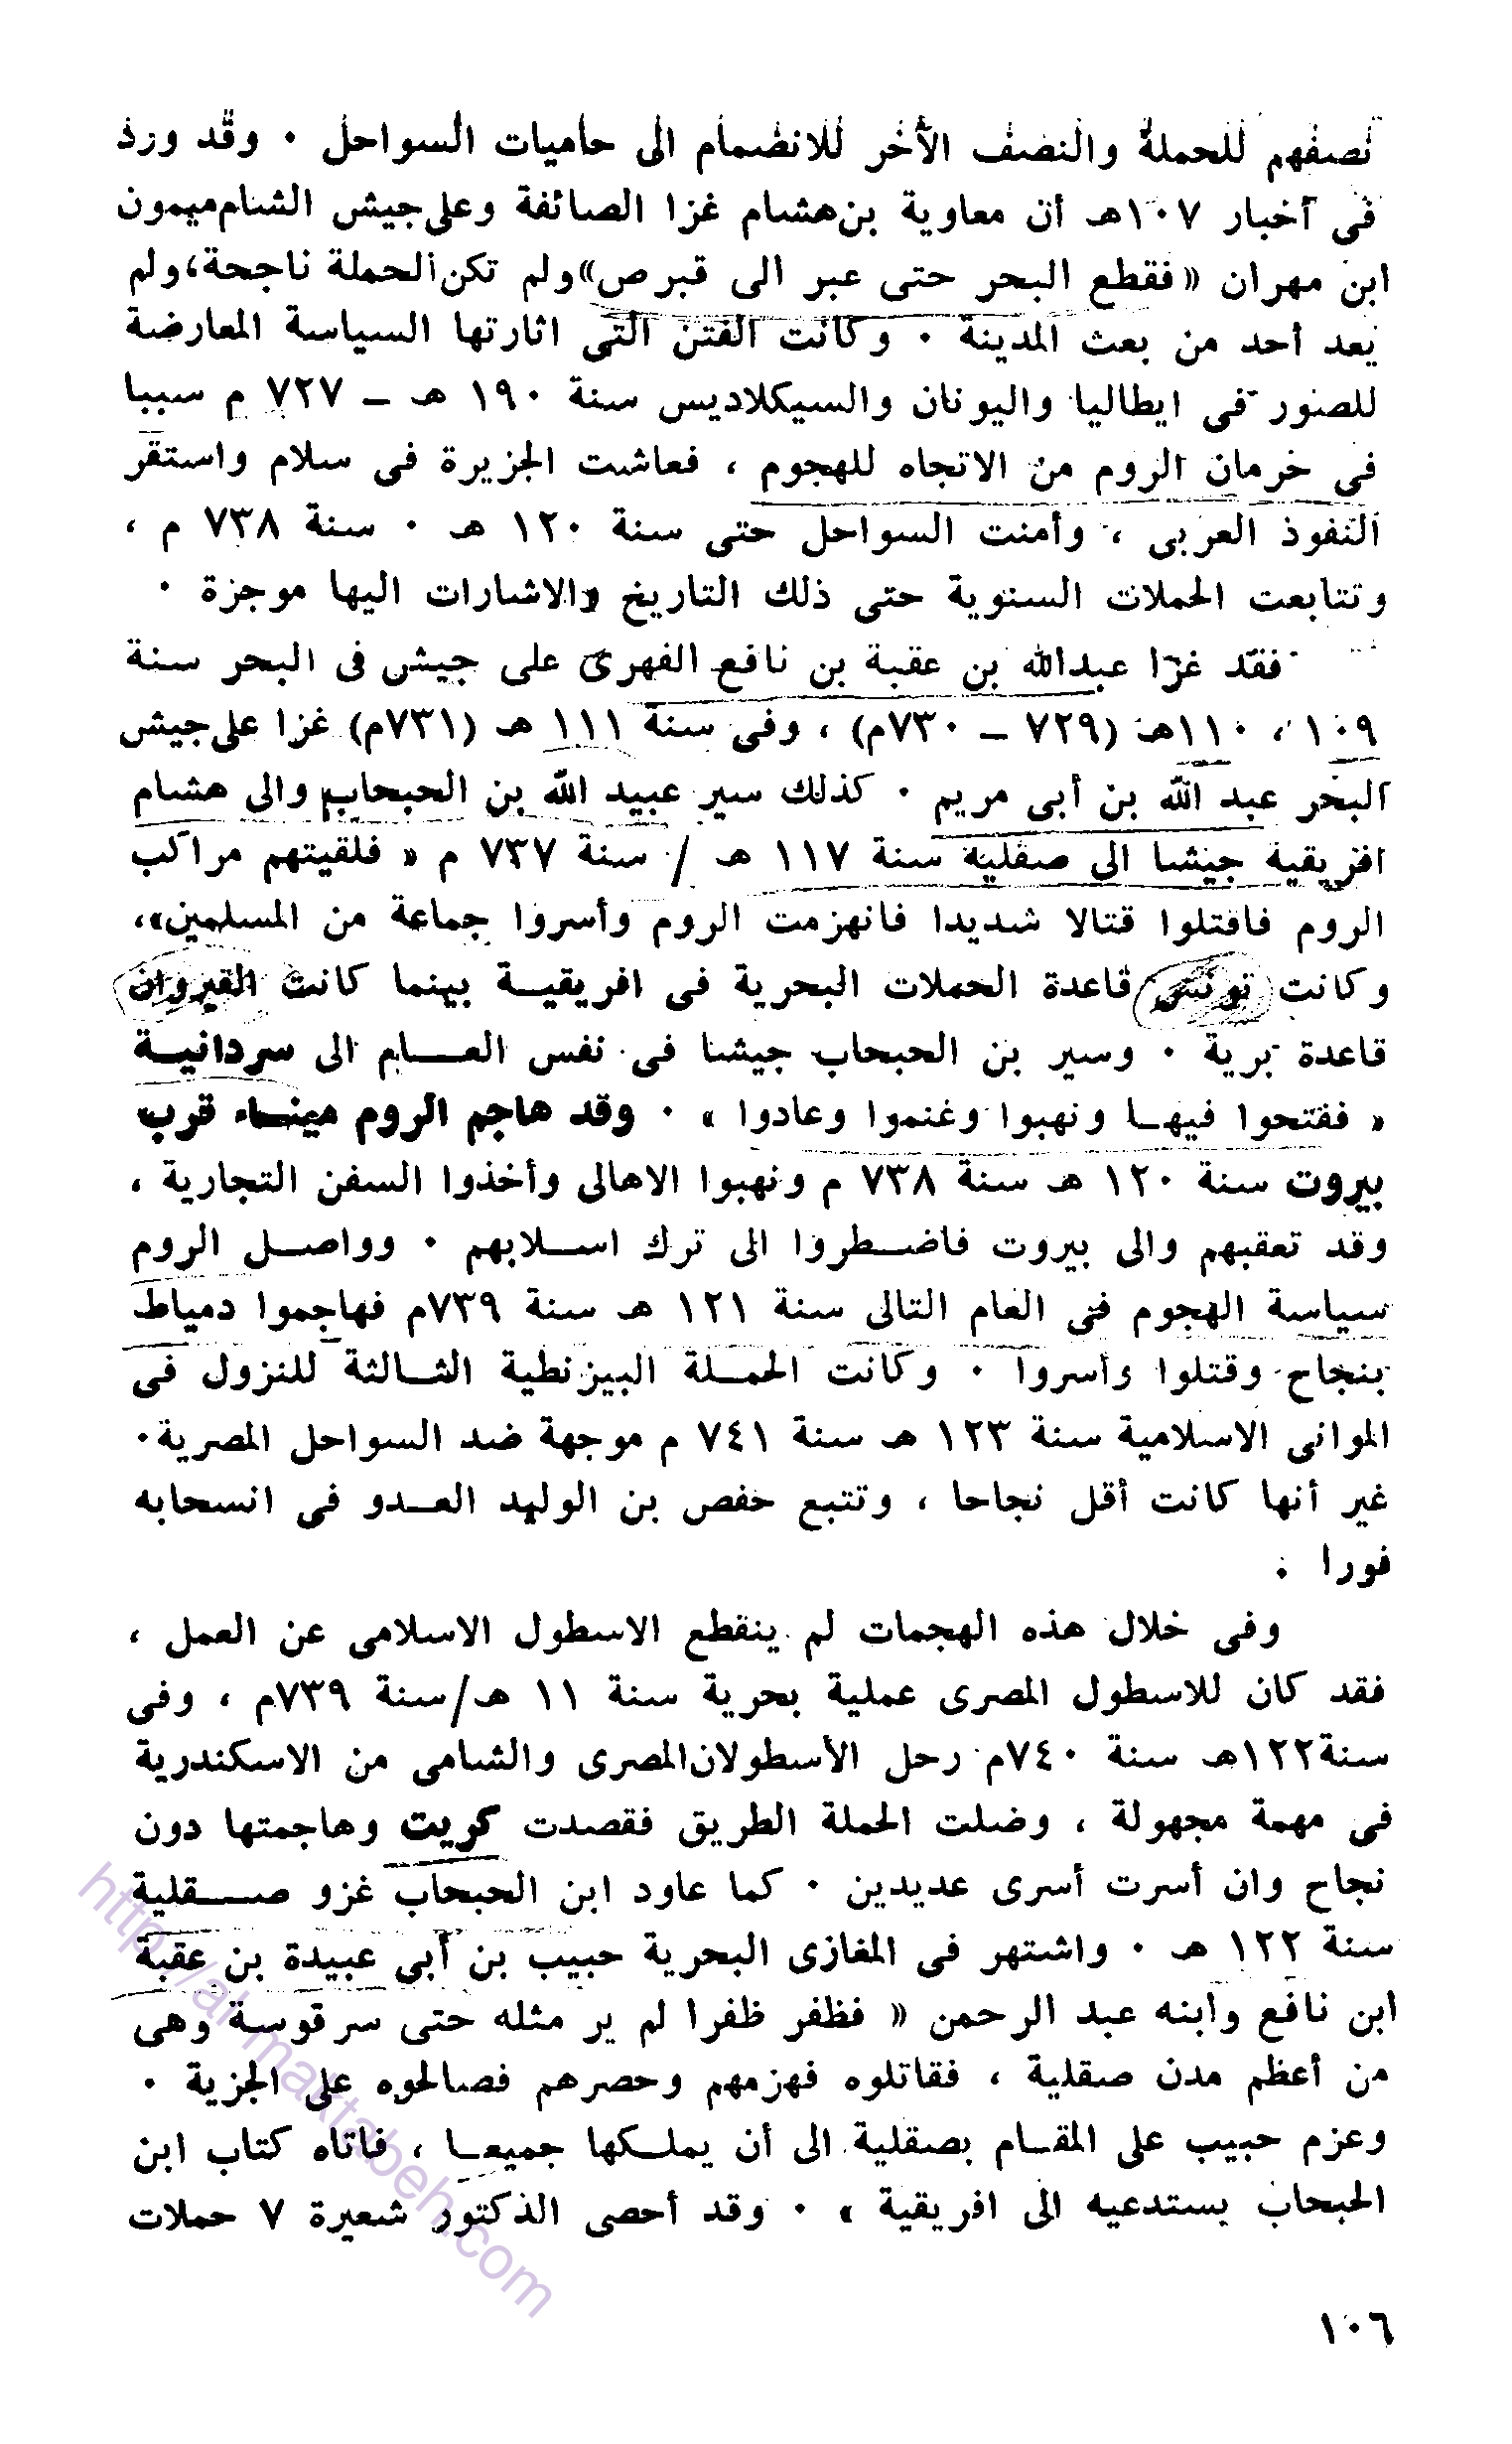 نصفهم للحملة والنصف الأخر للانضمام الى حاميات السواحل ٠ وقد ورد
فى أخبار ١٠٧هـ أن معاوية بن هشام غزا الصائفة وعلى جيش الشام ميمون
ابن مهران «فقطع البحر حتى عبر الى قبرص» ولم تكن الحملة ناجحة، ولم
يعد أحد من بعث المدينة ٠ وكانت الفتن التى اثارتها السياسة المعارضة
للصور فى ايطاليا واليونان والسيكلاديس سنة ١٩٠ هـ – ٧٢٧ م سببا
فى حرمان الروم من الاتجاه للهجوم ، فعاشت الجزيرة فى سلام واستقر
النفوذ العربى ، وأمنت السواحل حتى سنة ١٢٠ هـ ٠ سنة ٧٣٨ م ،
وتتابعت الحملات السنوية حتى ذلك التاريخ والاشارات اليها موجزة ٠
فقد غزا عبدالله بن عقبة بن نافع الفهرى على جيش فى البحر سنة
١٠٩ ، ١١٠هـ (٧٢٩ – ٧٣٠م) ، وفى سنة ١١١ هـ (٧٣١م) غزا على جيش
البحر عبد الله بن أبى مريم ٠ كذلك سير عبيد الله بن الحبحاب والى هشام
افريقية جيشا الى صقلية سنة ١١٧ هـ / سنة ٧٣٧ م « فلقيتهم مراكب
الروم فاقتلوا قتالا شديدا فانهزمت الروم وأسروا جماعة من المسلمين»،
وكانت تونس قاعدة الحملات البحرية فى افريقيــة بينما كانت القيروان
قاعدة برية ٠ وسير بن الحبحاب جيشا فى نفس العــام الى سردانيــة
« ففتحوا فيهــا ونهبوا وغنموا وعادوا » ٠ وقد هاجم الروم مينــاء قرب
بيروت سنة ١٢٠ هـ سنة ٧٣٨ م ونهبوا الاهالى وأخذوا السفن التجارية ،
وقد تعقبهم والى بيروت فاضــطروا الى ترك اســلابهم ٠ وواصــل الروم
سياسة الهجوم فى العام التالى سنة ١٢١ هـ سنة ٧٣٩م فهاجموا دمياط
بنجاح وقتلوا وأسروا ٠ وكانت الحمــلة البيزنطية الثــالثة للنزول فى
الموانى الاسلامية سنة ١٢٣ هـ سنة ٧٤١ م موجهة ضد السواحل المصرية٠
غير أنها كانت أقل نجاحا ، وتتبع حفص بن الوليد العــدو فى انسحابه
فورا ٠
وفى خلال هذه الهجمات لم ينقطع الاسطول الاسلامى عن العمل ،
فقد كان للاسطول المصرى عملية بحرية سنة ١١ هـ/سنة ٧٣٩م ، وفى
سنة١٢٢هـ سنة ٧٤٠م رحل الأسطولان المصرى والشامى من الاسكندرية
فى مهمة مجهولة ، وضلت الحملة الطريق فقصدت كريت وهاجمتها دون
نجاح وان أسرت أسرى عديدين ٠ كما عاود ابن الحبحاب غزو صــقلية
سنة ١٢٢ هـ ٠ واشتهر فى المغازى البحرية حبيب بن أبى عبيدة بن عقبة
ابن نافع وابنه عبد الرحمن « فظفر ظفرا لم ير مثله حتى سرقوسة وهى
من أعظم مدن صقلية ، فقاتلوه فهزمهم وحصرهم فصالحوه على الجزية ٠
وعزم حبيب على المقــام بصقلية الى أن يملــكها جميعــا ، فاتاه كتاب ابن
الحبحاب يستدعيه الى افريقية » ٠ وقد أحصى الدكتور شعيرة ٧ حملات
١٠٦
http://al-maktabeh.com